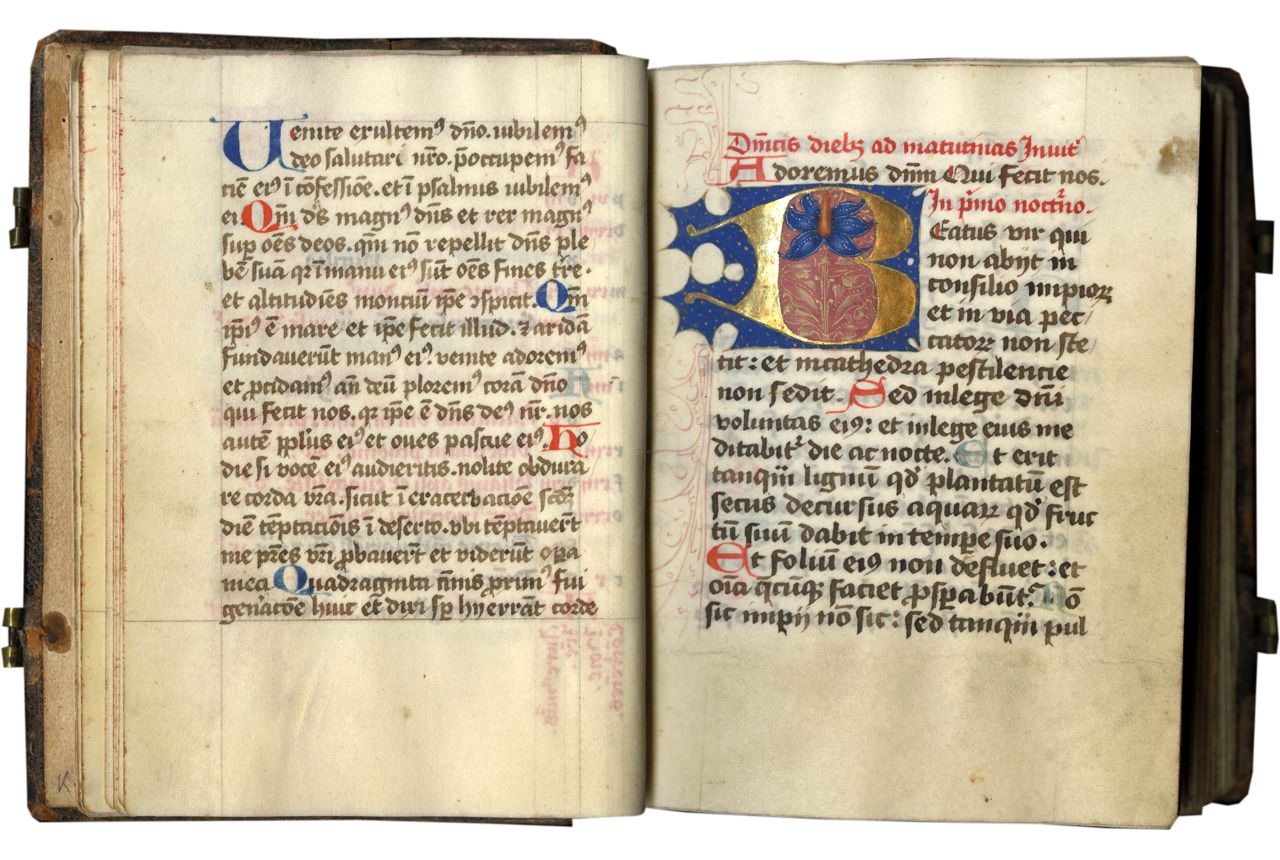 Uenite exultemꝰ dn̄o. iubilemꝰ
deo salutari nr̄o. p̄occupemꝰ fa
ciē eiꝰ ī cōfessiōe. et ī psalmis iubilemꝰ
ei. Qm̄ dꝰs magnꝰ dn̄s et rex magnꝰ
sup̄ oēs deos. qm̄ nō repellit dn̄s ple
bē suā qꝛ ī manu eiꝰ sūt oēs fines tr̄e.
et altitudiēs monciū ip̄e ↄspicit. Qm̄
ip̄iꝰ ē mare et ip̄e fecit illud. ⁊ aridā
fundauerūt manꝰ eiꝰ. venite adoremꝰ
et ꝓcidamꝰ an̄ deū ploremꝰ corā dn̄o
qui fecit nos. qꝛ ip̄e ē dn̄s deꝰ nr̄. nos
autē pp̄lus eiꝰ et oues pascue eiꝰ. ho
die si vocē eiꝰ audieritis. nolite obdura
re corda vr̄a. sicut ī exacerbaciōe scd̄ꝫ
diē tēptaciōis ī deserto. vbi tēptauer̄t
me pr̄es vr̄i ꝓbauer̄t et viderūt oꝑa
mea Quadraginta ānis ꝓximꝰ fui
gen̄acōe huic et dixi sꝑ hy errant corde
Dn̄icis diebꝫ ad matutinas Inuit̄
Adoremus dn̄m Qui fecit nos.
In pͥmo noct̄no.
Beatus vir qui
non abijt in
consilio impioꝝ
et in via pec
catoꝝ non ste
tit: et in cathedra pestilencie
non sedit. Sed in lege dn̄i
voluntas eiꝰ: et in lege eius me
ditabit᷑ die ac nocte. Et erit
tanqͣ lignū qd̄ plantatū est
secus decursus aquaꝝ qd̄ fruc
tū suū dabit in tempe suo.
Et foliū eiꝰ non defluet: et
oīa q̄cūqꝫ faciet ꝓsꝑabūt᷑. Nō
sic impij nō sic: sed tanqͣ pul